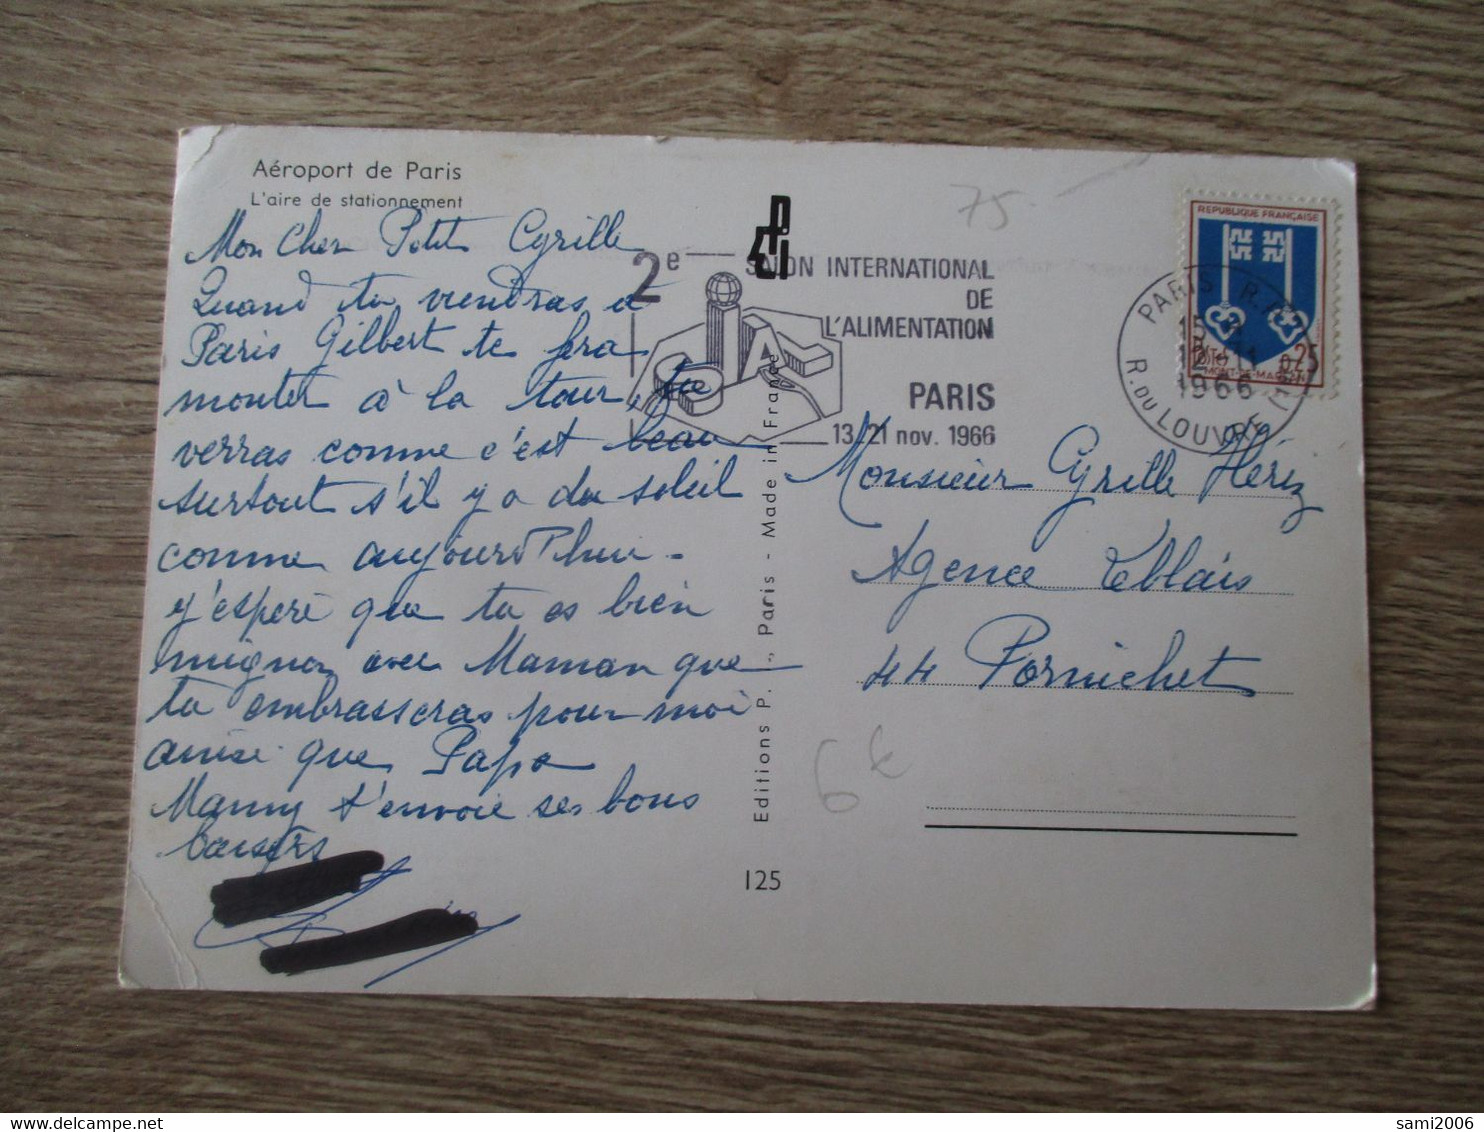 Aéroport de Paris
L'aire de stationnement
Mon Cher Petit Cyrille
Quand tu viendras à
Paris Gilbert te fera
monter à la tour, tu
verras comme c'est beau
surtout s'il y a du soleil
comme aujourd'hui -
j'espère que tu es bien
mignon avec Maman que
tu embrasseras pour moi
ainsi que Papa
Mamy t'envoie ses bons
baisers
2e SALON INTERNATIONAL
DE
L'ALIMENTATION
SIAL
PARIS
13/21 nov. 1966
75.-
REPUBLIQUE FRANÇAISE
POSTES 0,25
MONT-DE-MARSAN
PARIS R.P.
1966
R. DU LOUVRE
Monsieur Cyrille Hériz
Agence Leblais
44 Pornichet
6€
Editions P. I., Paris - Made in France
125
sami2006